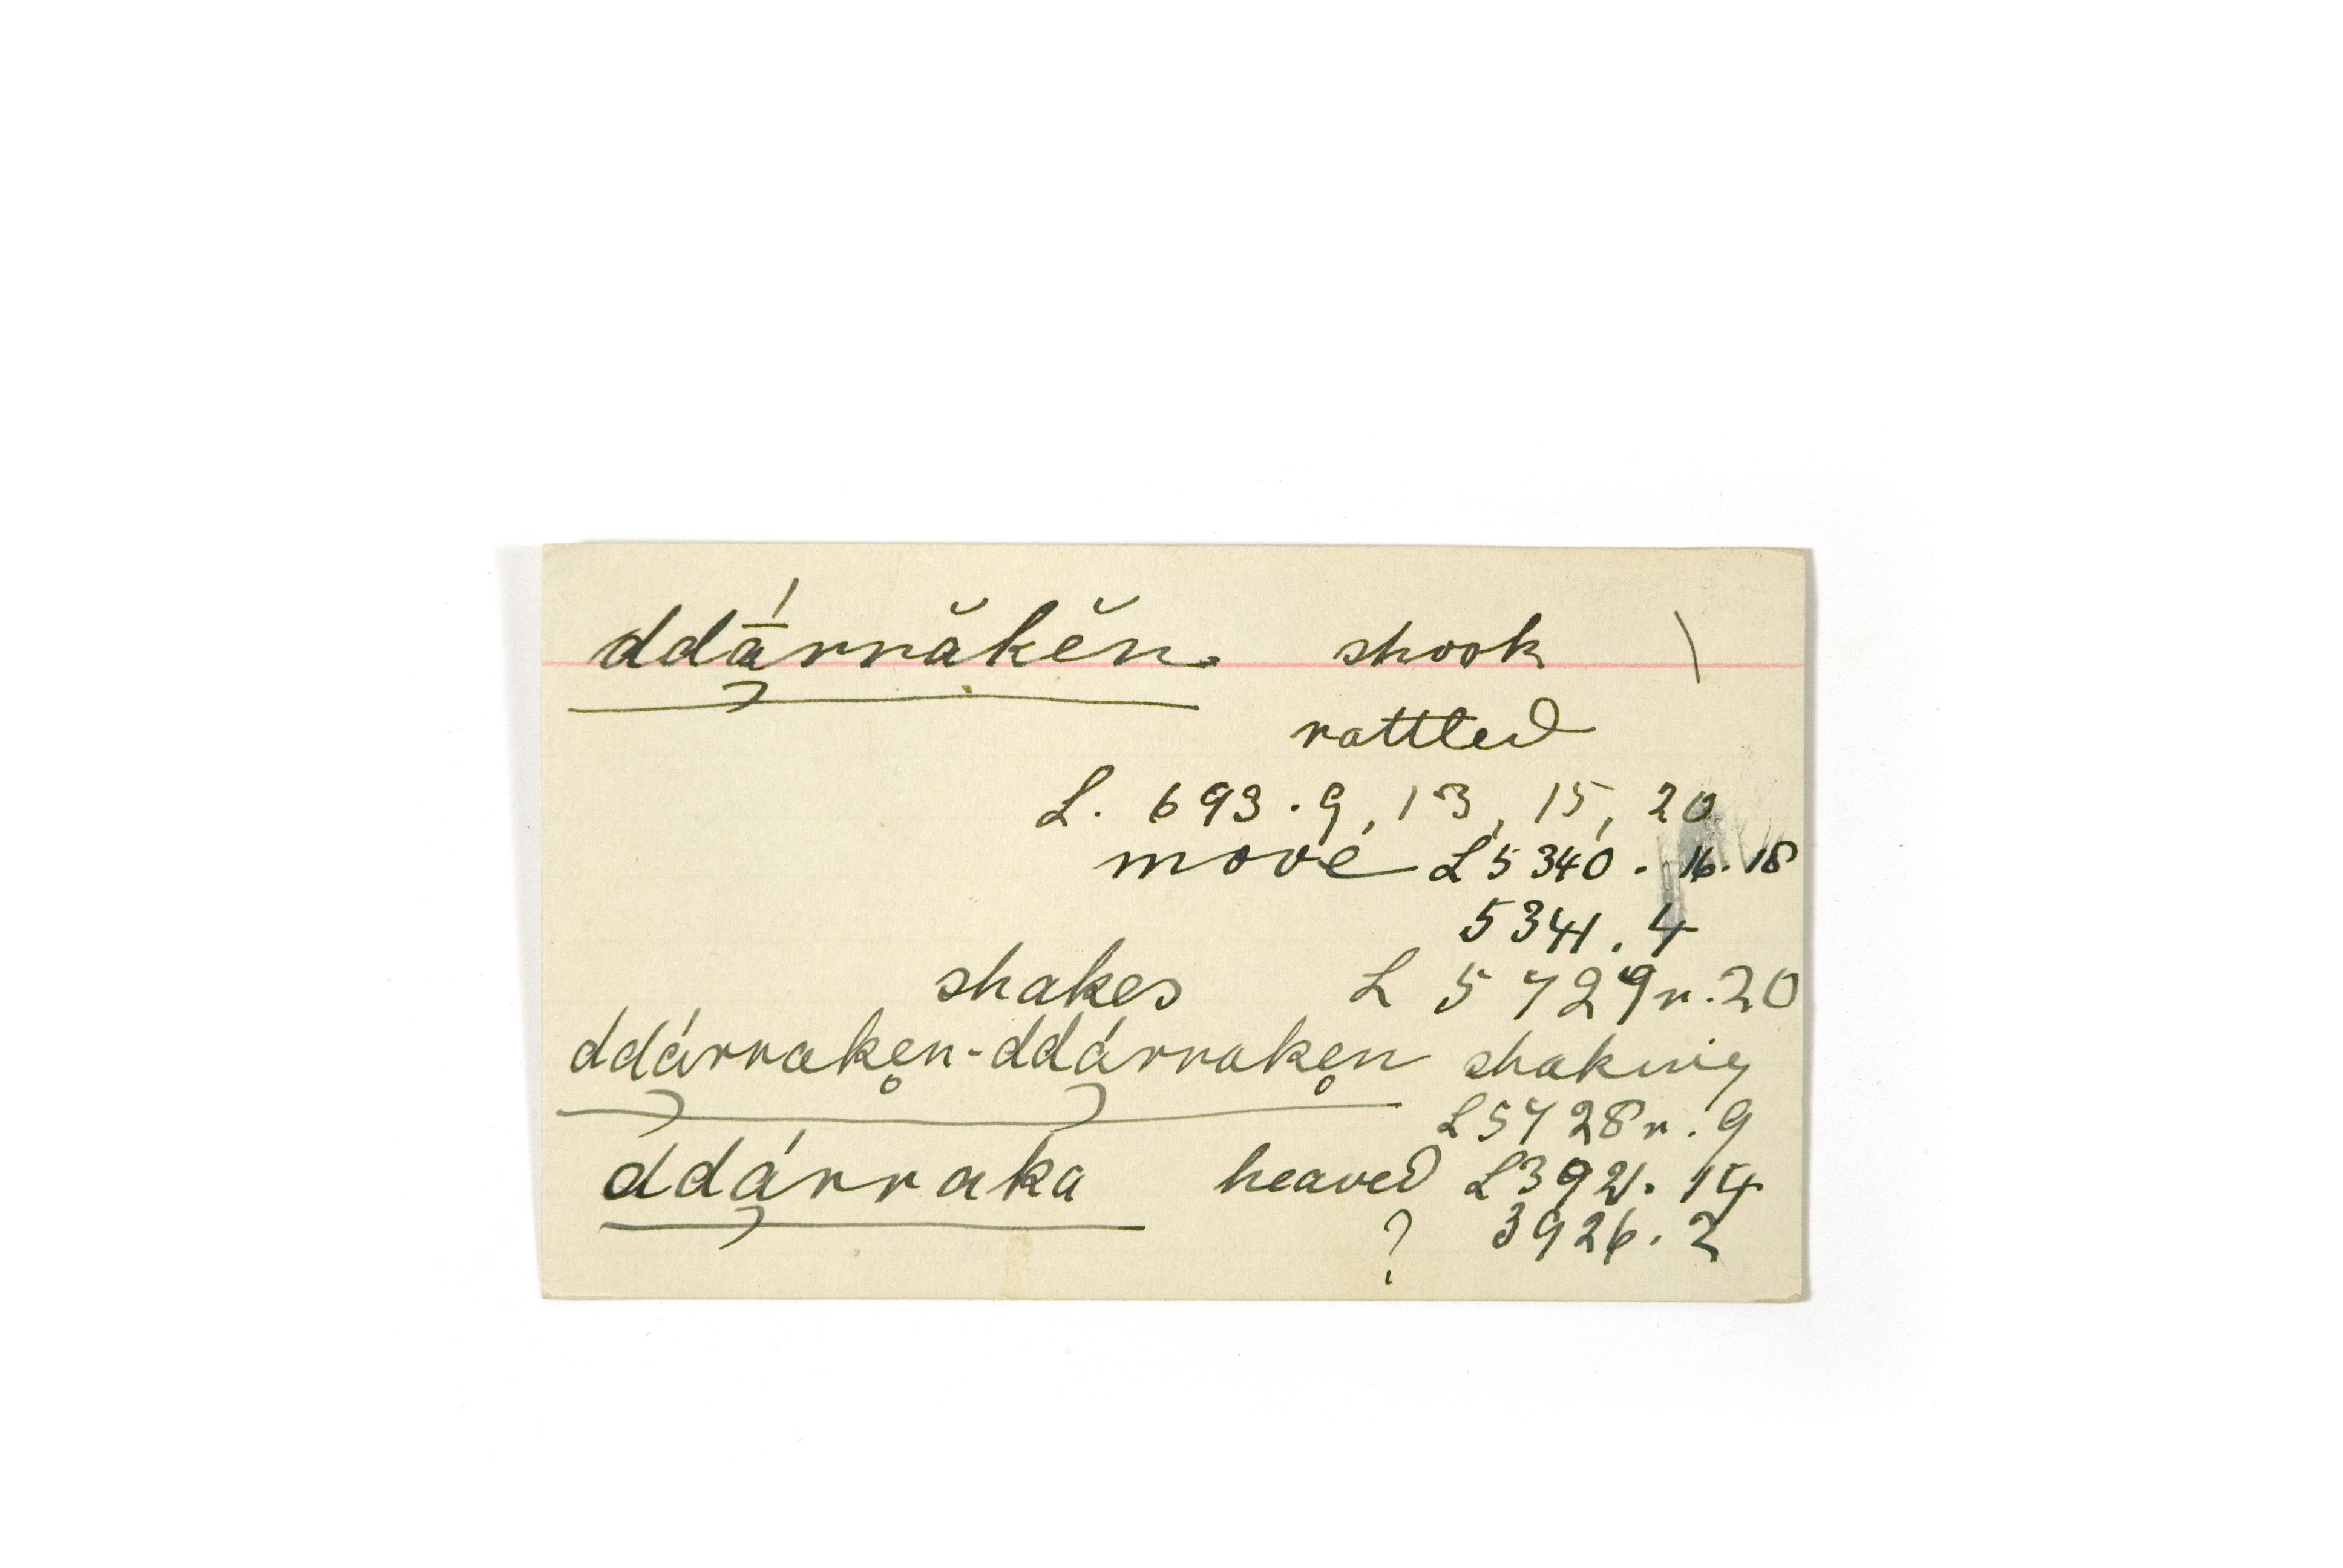 ddā́rrăkĕn. shook \
rattled
L. 693.9, 13, 15, 20
move L5340. 16. 18
5341. 4
shakes L 5729r.20
ddárrake̥n-ddárrake̥n shaking
L5728r.9
ddárraka heaved L3921. 14
? 3926. 2